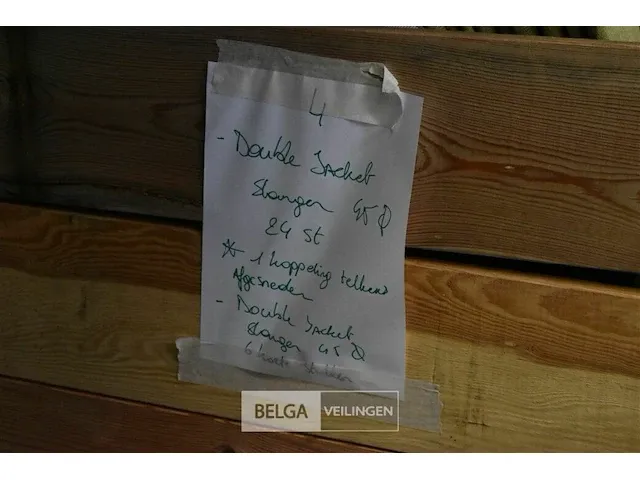 4
- Double Jacket
Slangen 45 Ø
24 St
* 1 koppeling telkens
Afgesneden
- Double Jacket
Slangen 45 Ø
6
BELGA VEILINGEN